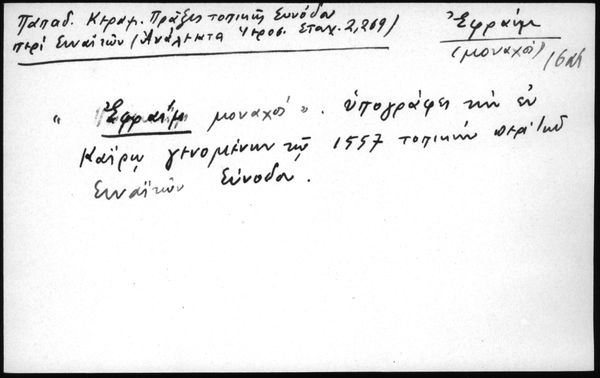 Παπαδ. Κεραμ. Πράξεις τοπικῆς Συνόδου
περί Σιναϊτῶν (Ἀνάλεκτα Ἱεροσ. Σταχ. 2,269)
Ἐφραίμ
(μοναχός)
16 αι
" Ἐφραίμ μοναχός ". ὑπογράφει τήν ἐν
Καΐρῳ γενομένην τῷ 1557 τοπικήν περί τῶν
Σιναϊτῶν Σύνοδον.